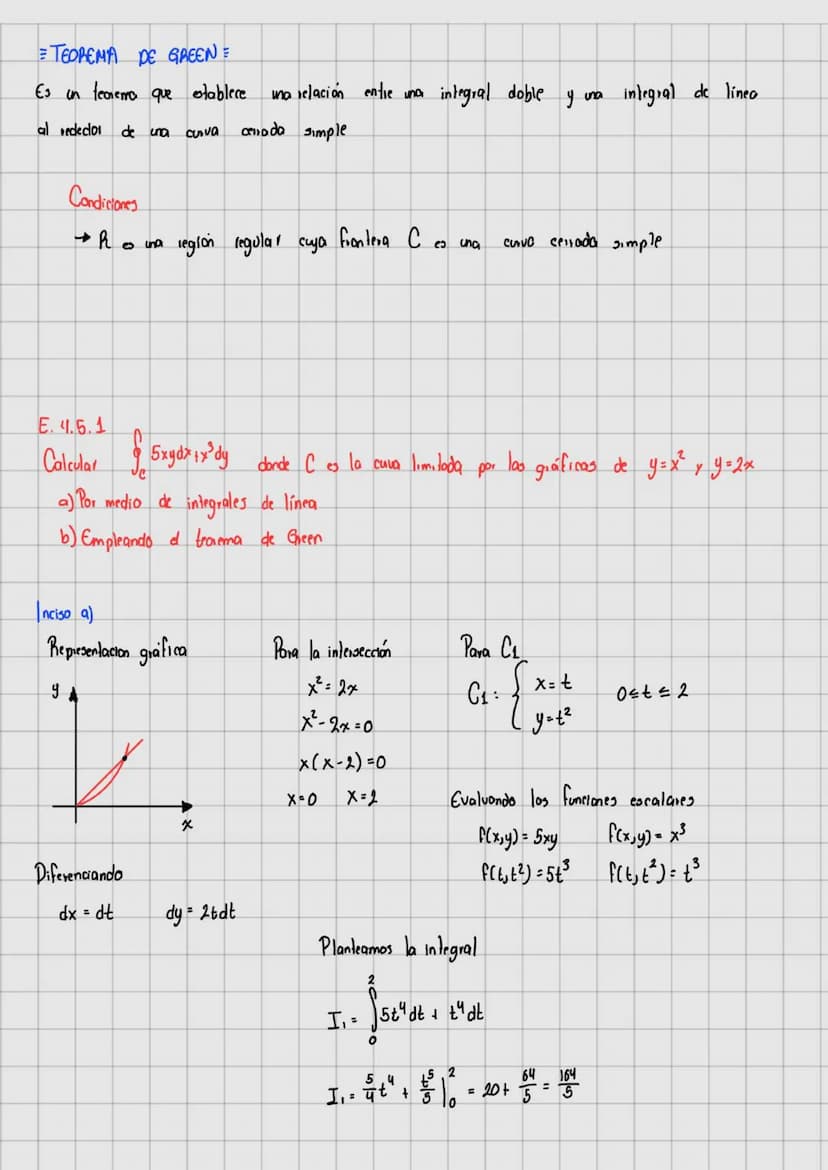 = TEOREMA DE GREEN =
Es un teorema que establece una relación entre una integral doble y una integral de línea
al rededor de una curva cerrada simple
Condiciones
→ R es una región regular cuya frontera C es una curva cerrada simple
E. 4.5.1
Calcular ∮c 5xydx+x³dy donde C es la curva limitada por las gráficas de y=x² y y=2x
a) Por medio de integrales de línea
b) Empleando el teorema de Green
Inciso a)
Representacion gráfica
y
x
Para la intersección
x² = 2x
x² - 2x = 0
x(x-2) = 0
x=0 x=2
Para C1
C1: { x=t
y=t²
0≤t≤2
Evaluando las funciones escalares
f(x,y) = 5xy f(x,y) = x³
f(t,t²) = 5t³ f(t,t²) = t³
Diferenciando
dx = dt dy = 2tdt
Planteamos la integral
I₁ = ∫₀² 5t⁴dt + t⁴dt
I₁ = 5/4 t⁴ + t⁵/5 |₀² = 20 + 64/5 = 164/5